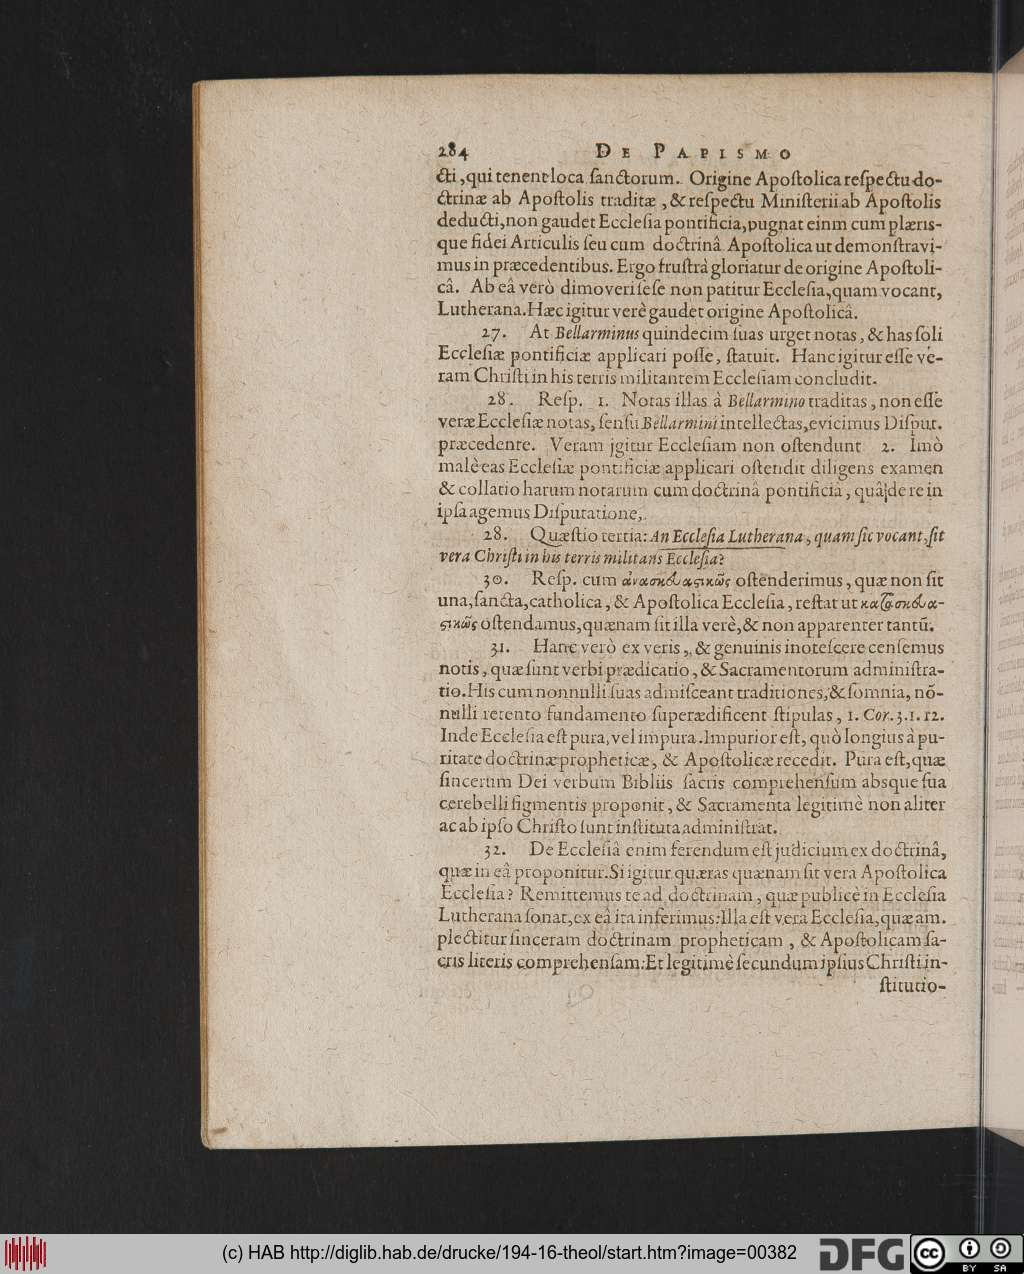 284 DE PAPISMO
cti, qui tenent loca ſanctorum. Origine Apoſtolica reſpectu do-
ctrinæ ab Apoſtolis traditæ, & reſpectu Miniſterii ab Apoſtolis
deducti, non gaudet Eccleſia pontificia, pugnat einm cum plæris-
que fidei Articulis ſeu cum doctrinâ Apoſtolica ut demonſtravi-
mus in præcedentibus. Ergo fruſtrà gloriatur de origine Apoſtoli-
câ. Ab eâ verò dimoveri ſeſe non patitur Eccleſia, quam vocant,
Lutherana. Hæc igitur verè gaudet origine Apoſtolicâ.
27. At Bellarminus quindecim ſuas urget notas, & has ſoli
Eccleſiæ pontificiæ applicari poſſe, ſtatuit. Hanc igitur eſſe ve-
ram Chriſti in his terris militantem Eccleſiam concludit.
28. Reſp. 1. Notas illas à Bellarmino traditas, non eſſe
veræ Eccleſiæ notas, ſenſu Bellarmini intellectas, evicimus Diſput.
præcedente. Veram jgitur Eccleſiam non oſtendunt 2. Imò
malè eas Eccleſiæ pontificiæ applicari oſtendit diligens examen
& collatio harum notarum cum doctrinâ pontificiâ, quâ de re in
ipſa agemus Diſputatione.
28. Quæſtio tertia: An Eccleſia Lutherana, quam ſic vocant, ſit
vera Chriſti in his terris militans Eccleſia?
30. Reſp. cum ἀνασκευαστικῶς oſtenderimus, quæ non ſit
una, ſancta, catholica, & Apoſtolica Eccleſia, reſtat ut κατασκευα-
στικῶς oſtendamus, quænam ſit illa verè, & non apparenter tantũ.
31. Hanc verò ex veris, & genuinis inoteſcere cenſemus
notis, quæ ſunt verbi prædicatio, & Sacramentorum adminiſtra-
tio. His cum nonnulli ſuas admiſceant traditiones, & ſomnia, nõ-
nulli retento fundamento ſuperædificent ſtipulas, 1. Cor. 3. 1. 12.
Inde Eccleſia eſt pura, vel impura. Impurior eſt, quò longius à pu-
ritate doctrinæ propheticæ, & Apoſtolicæ recedit. Pura eſt, quæ
ſincerum Dei verbum Bibliis ſacris comprehenſum absque ſua
cerebelli figmentis proponit, & Sacramenta legitimè non aliter
ac ab ipſo Chriſto ſunt inſtituta adminiſtrat.
32. De Eccleſiâ enim ferendum eſt judicium ex doctrinâ,
quæ in eâ proponitur. Si igitur quæras quænam ſit vera Apoſtolica
Eccleſia? Remittemus te ad doctrinam, quæ publicè in Eccleſia
Lutherana ſonat, ex eâ ita inferimus: Illa eſt vera Eccleſia, quæ am.
plectitur ſinceram doctrinam propheticam, & Apoſtolicam ſa-
cris literis comprehenſam: Et legitimè ſecundum ipſius Chriſti in-
ſtitutio-
(c) HAB http://diglib.hab.de/drucke/194-16-theol/start.htm?image=00382
DFG
cc BY SA